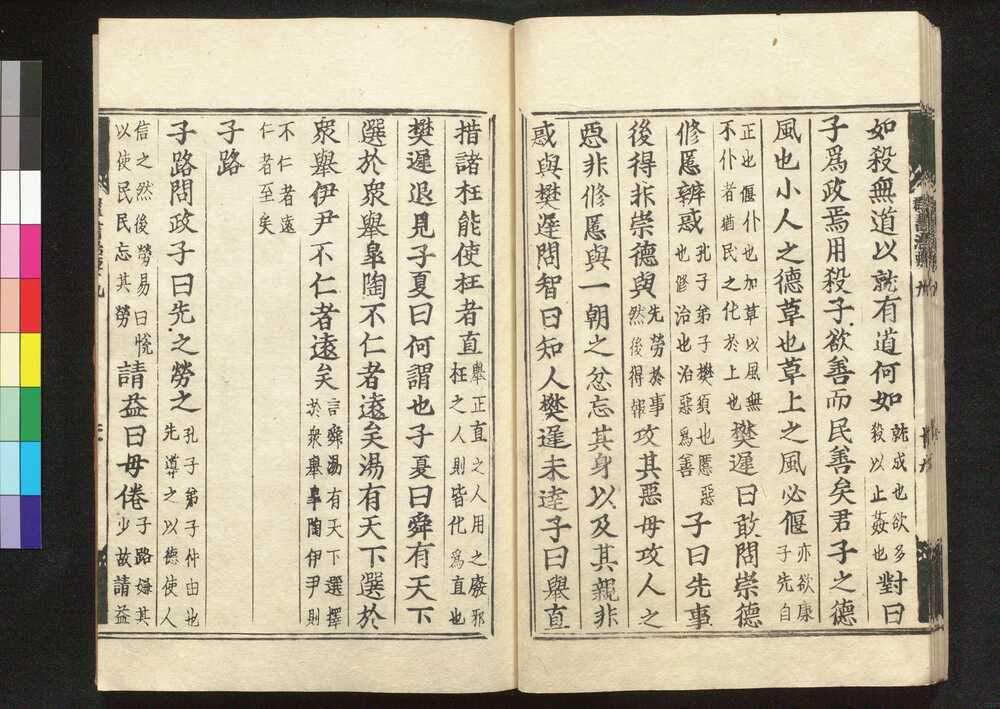 如殺無道以就有道何如就成也欲多殺以止姦也對曰
子爲政焉用殺子欲善而民善矣君子之德
風也小人之德草也草上之風必偃亦欲康子先自
正也偃仆也加草以風無不仆者猶民之化於上也樊遲曰敢問崇德
修慝辨惑孔子弟子樊須也慝惡也修治也治惡爲善子曰先事
後得非崇德與先勞於事然後得報攻其惡毋攻人之
惡非修慝與一朝之忿忘其身以及其親非
惑與樊遲問智曰知人樊遲未達子曰舉直
措諸枉能使枉者直舉正直之人用之廢邪枉之人則皆化爲直也
樊遲退見子夏曰何謂也子夏曰舜有天下
選於衆舉皐陶不仁者遠矣湯有天下選於
衆舉伊尹不仁者遠矣言舜湯有天下選擇於衆舉皐陶伊尹則
不仁者遠仁者至矣
子路
子路問政子曰先之勞之孔子弟子仲由也先導之以德使人
信之然後勞易曰悅以使民民忘其勞請益曰毋倦子路嫌其少故請益